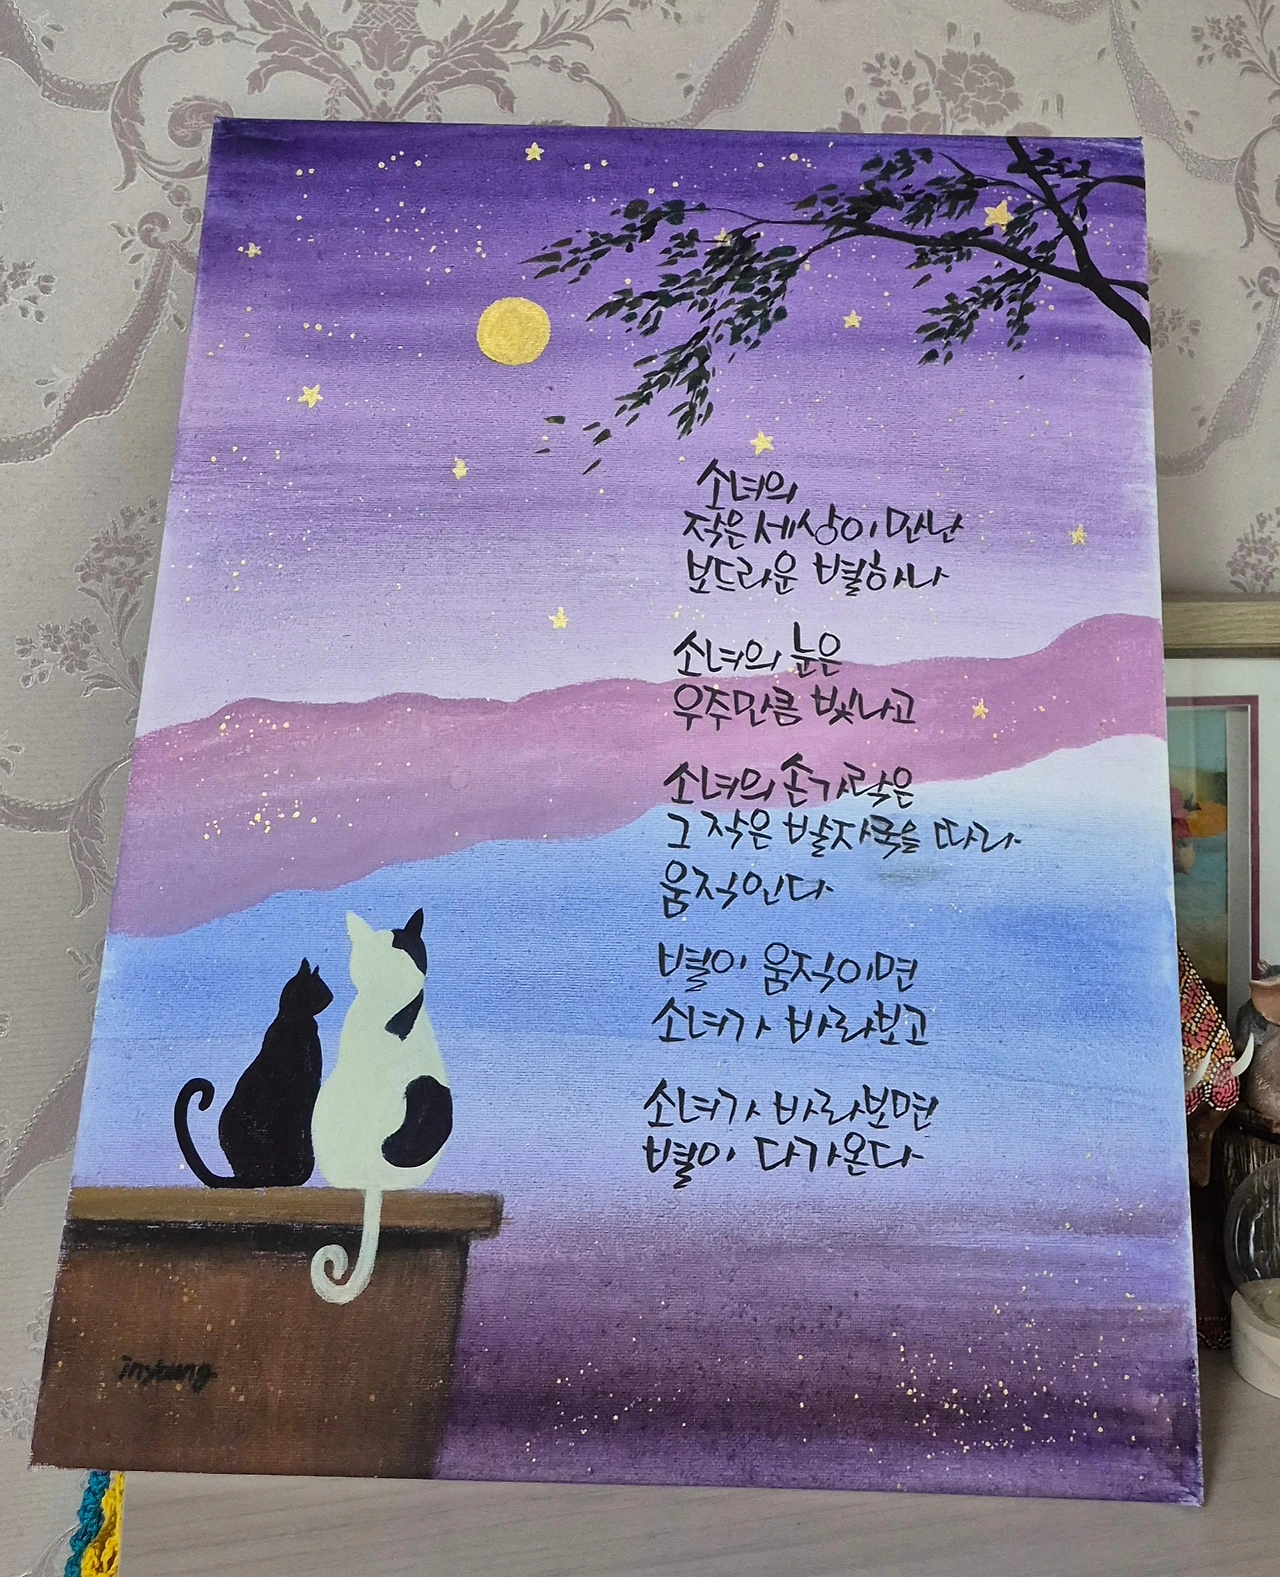 소녀의
작은 세상이 만난
보드라운 별하나
소녀의 눈은
우주만큼 빛나고
소녀의 손가락은
그 작은 발자국을 따라
움직인다
별이 움직이면
소녀가 바라보고
소녀가 바라보면
별이 다가온다
inyoung